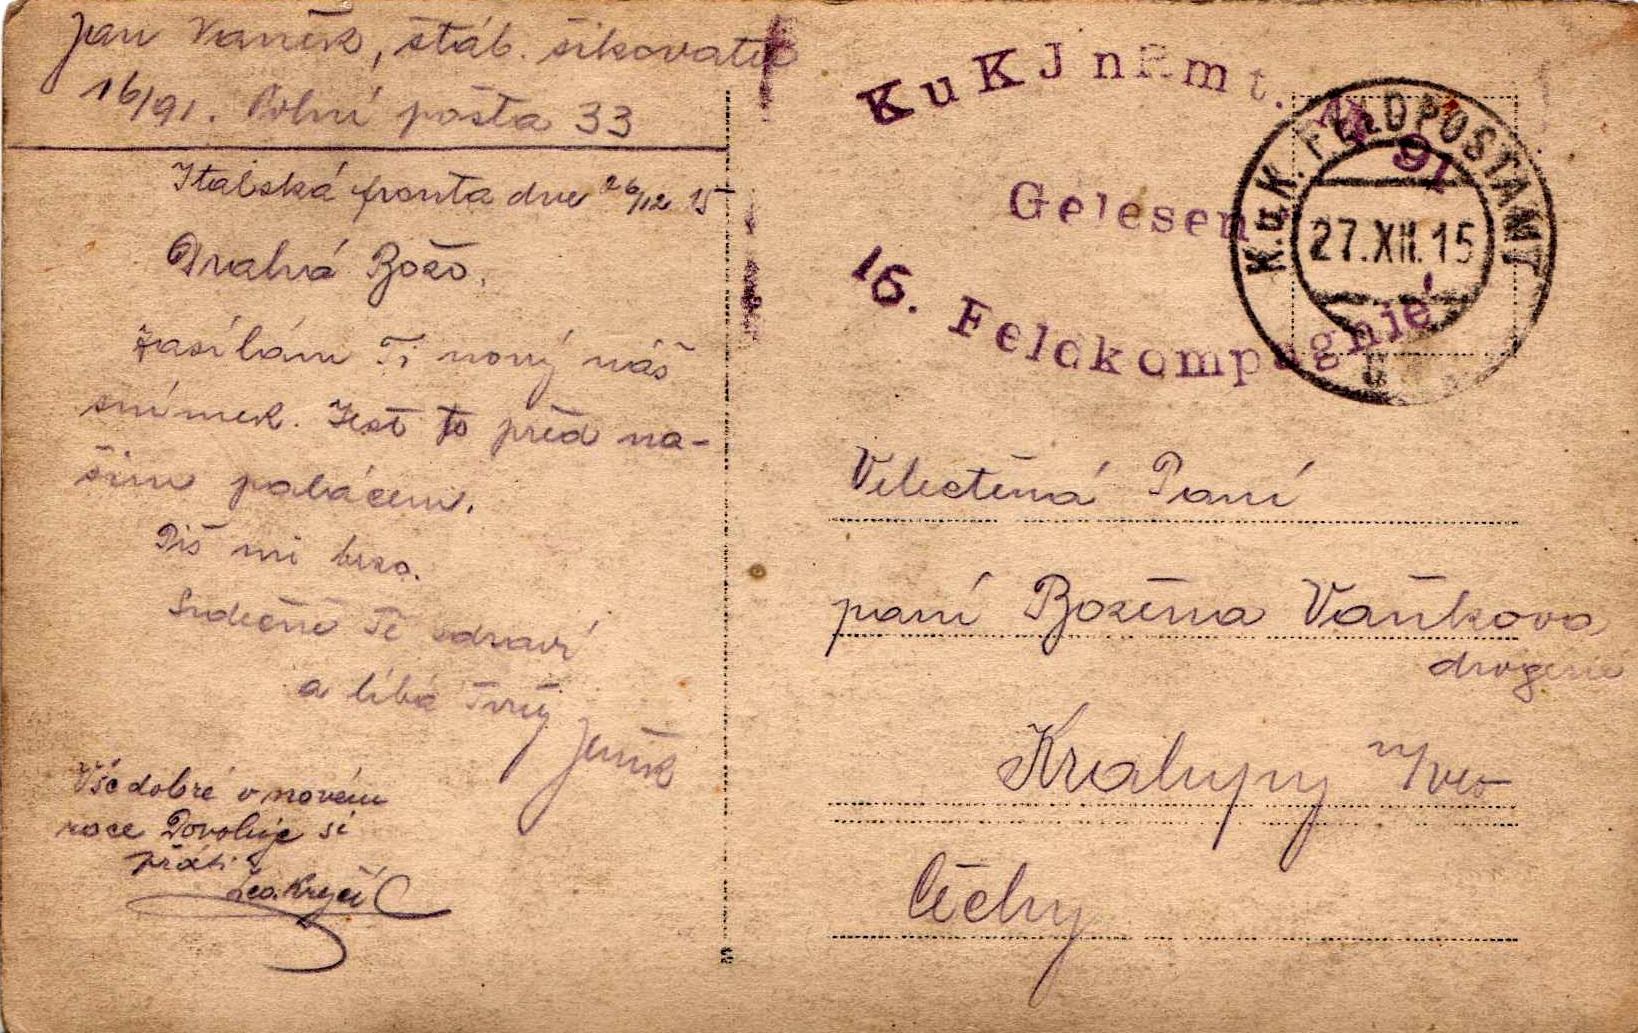 Jan Vaněk, štáb. šikovatel
16/91. Polní pošta 33
Italská fronta dne 26/12 15
Drahá Božo.
Zasílám Ti nový náš
snímek. Jest to před na-
šim palácem.
Piš mi brzo.
Srdečně Tě zdraví
a líbá Tvůj Jeník
Vše dobré v novém
roce Dovoluje si
přáti
Leo. Krejčí
K u K J n R m t. № 91
Gelesen
16. Feldkompagnie
K.u.K. FELDPOSTAMT
27.XII.15
Velectěná Paní
paní Božena Vaňkova
drogerie
Kralupy n/Vlt
Čechy